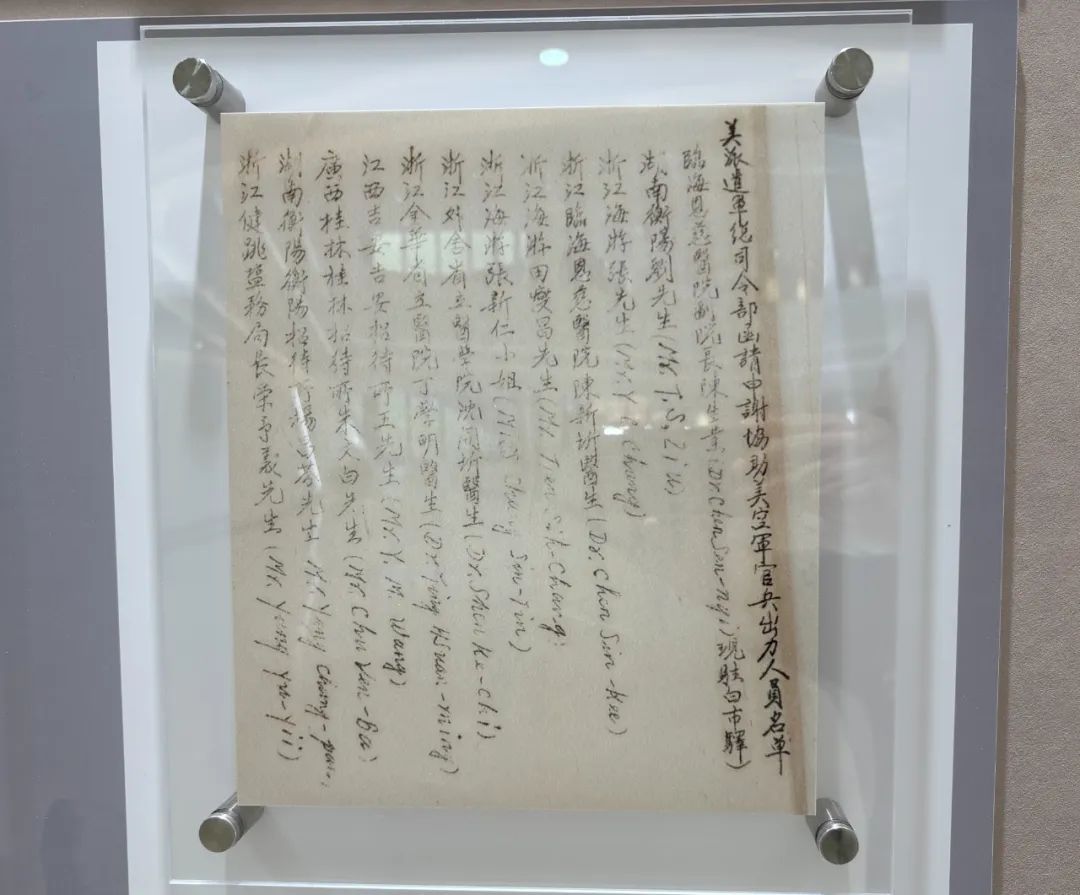 美派遣軍總司令部函請申謝協助美空軍官兵出力人員名單
臨海恩慈醫院副院長陳生業(Dr Chen Sen-ngi)現駐白市驛)
湖南衡陽劉先生(Mr T. S. Liu)
浙江海游張先生(Mr. Y Chang)
浙江臨海恩慈醫院陳新圻醫生(Dr. Chen Sin-Kee)
浙江海游田燮昌先生(Mr. Tien Sih-Chang
浙江海游張新仁小姐(Miss Chang Sin-Jin)
浙江 省立醫學院沈 圻醫生(Dr. Shen Ke-Chi)
浙江金華省立醫院丁學明醫生(Dr Ting Hsuan-ming)
江西吉安吉安招待所王先生(Mr. Y. M. Wang)
廣西桂林桂林招待所朱文白先生(Mr. Chu Ven-Ba)
湖南衡陽衡陽招待所楊昌 先生 Mr Yang Chang-
浙江健跳鹽務局長榮 義先生(Mr. Yung Yu-Yii)